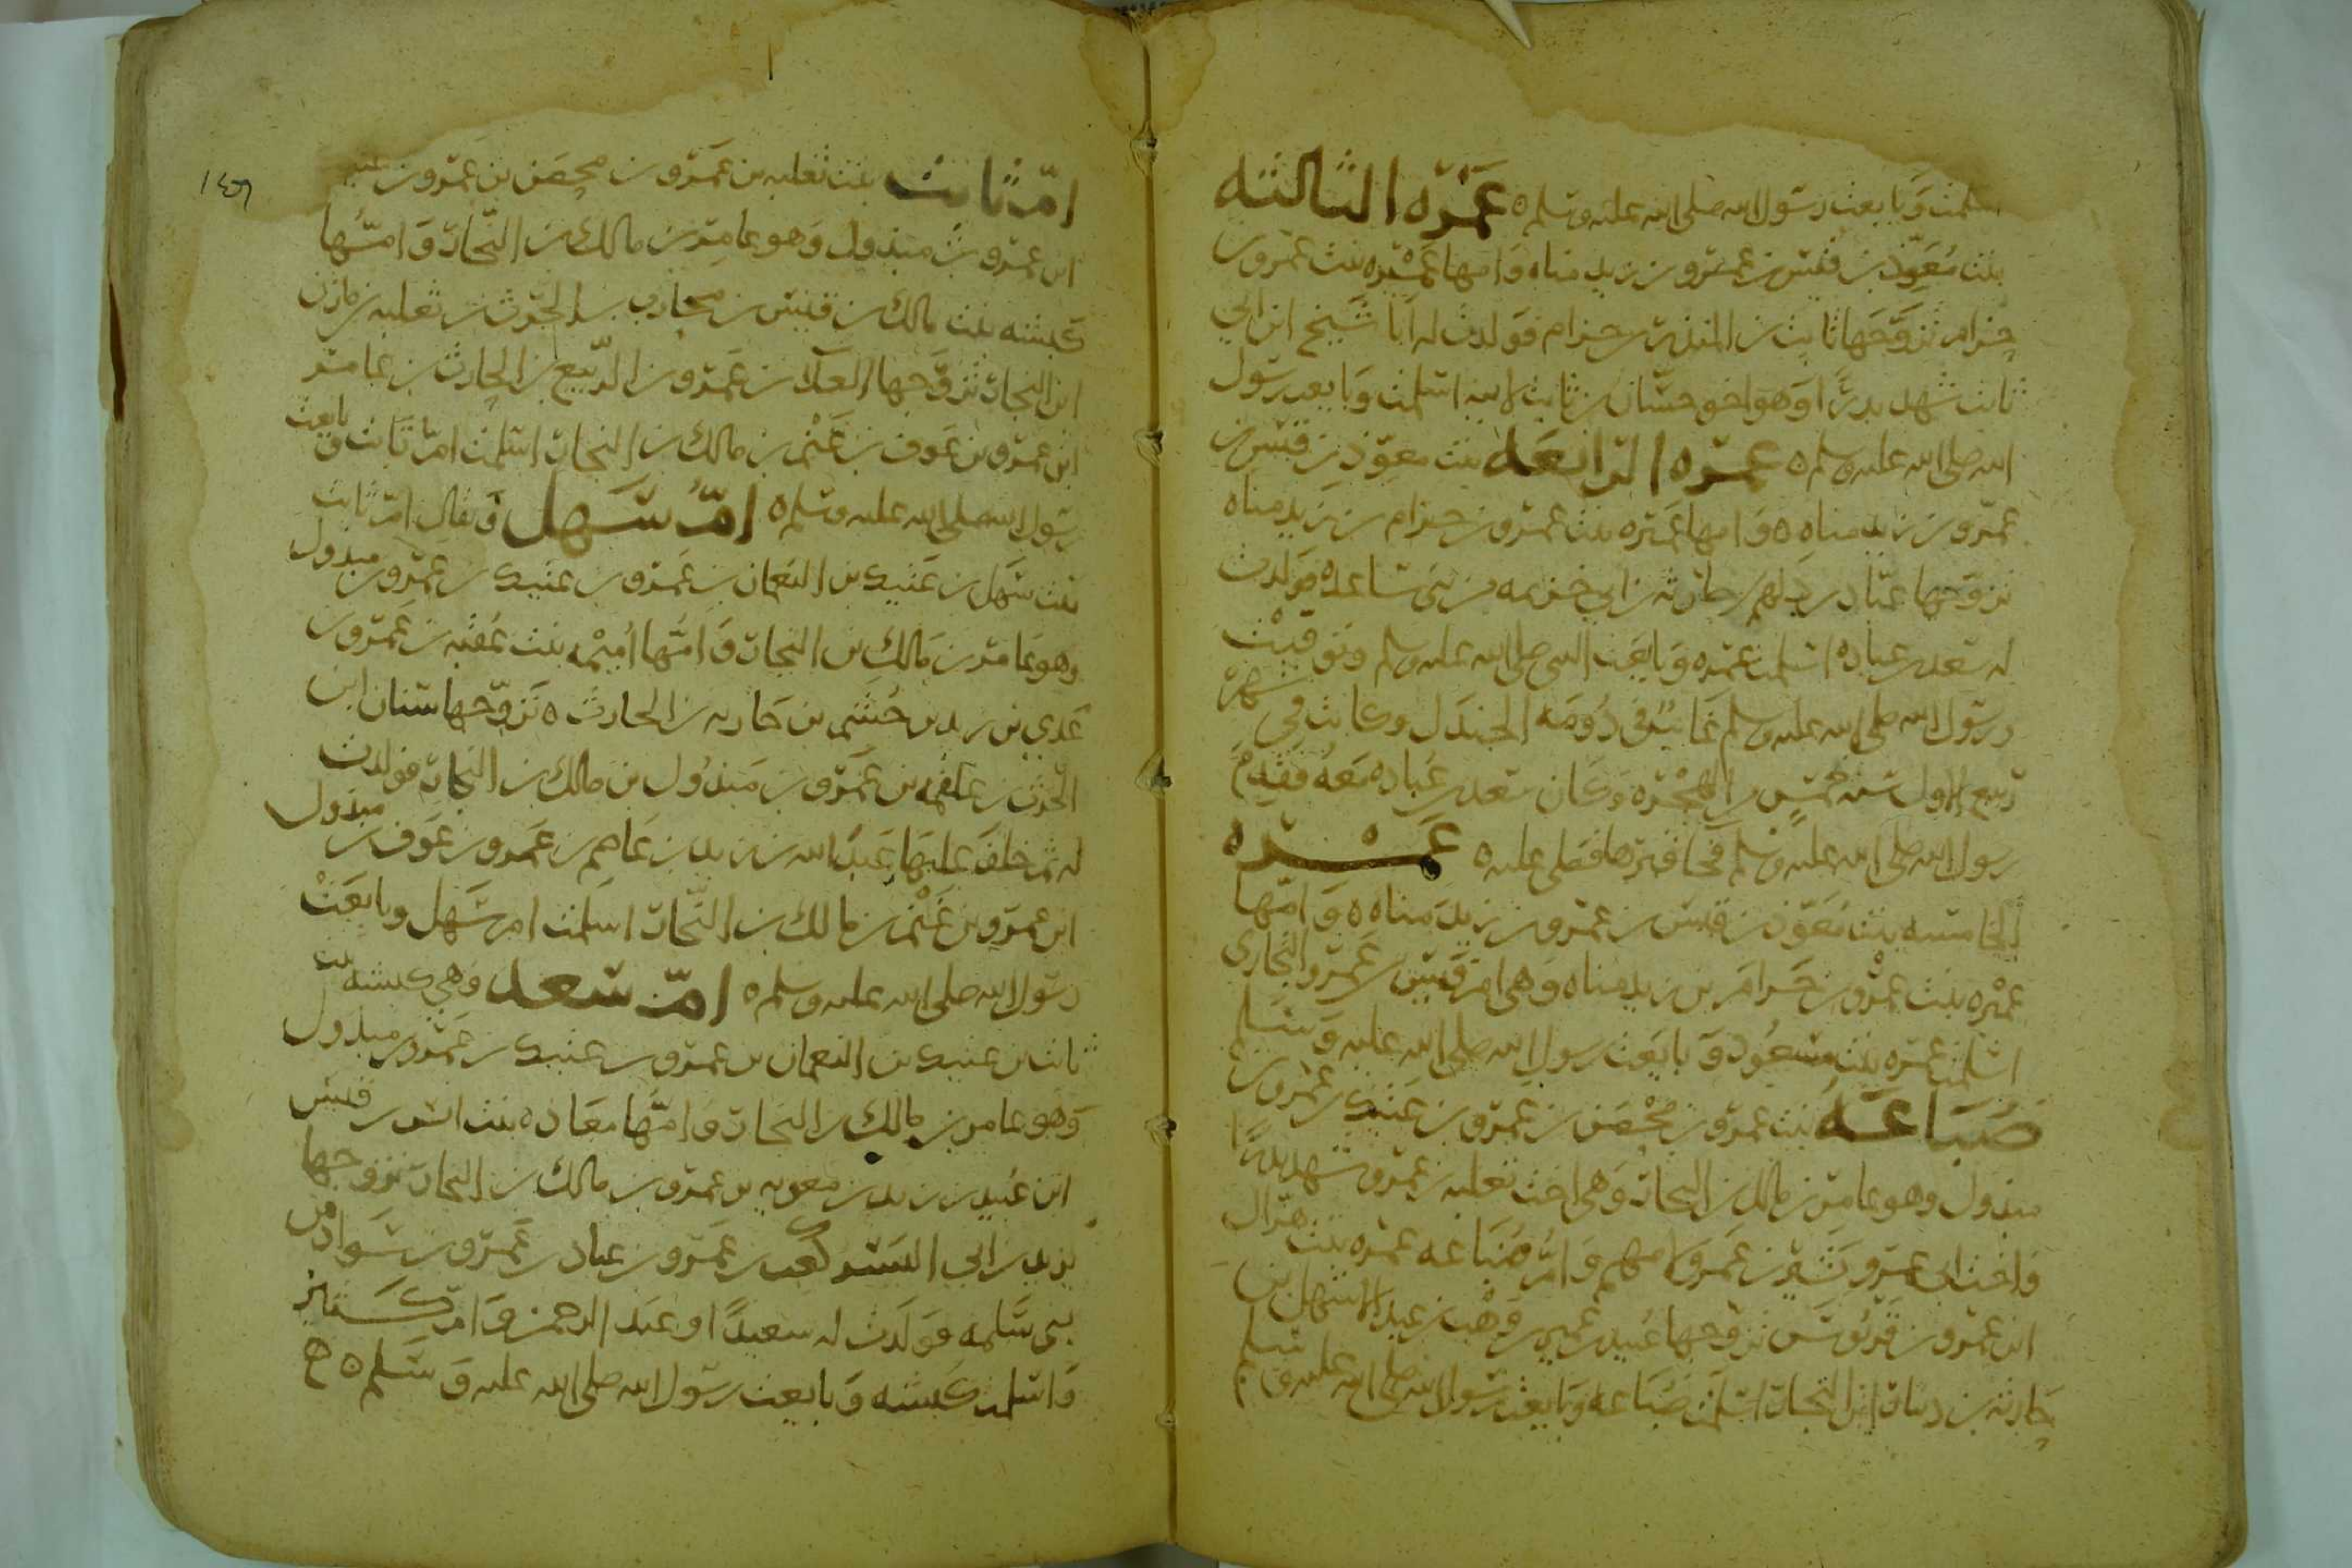 اسلمت وبايعت رسول الله صلى الله عليه وسلم ه عَمْرَه الثالثه
بنت مُعَوّذ بن قيس بن عمرو بن زيد مناه وَامها عَمْيره بنت عمرو بن
حزام تزوَّجَها ثابت بن المنذر بن حزام فولدت له اَبا شَيخ ابن ابي
ثابت شهد بدرًا وَهوَ اخو حسّان بن ثابت لابيه اسلمت وَبايعت رسول
الله صلى الله عليه وسلم ه عمره الرابعَه بنت معوّذ بن قيس بن
عمرو بن زيد مناه ه وَامها عَميره بنت عمرو بن حزام بن زيد مناه
تزوجها عبّاد بن دَلهم بن حارثه بن ابي خزيمه من بني ساعده فولدت
له سعد بن عباده اسلمت عمره وَبايعت النبي صلى الله عليه وسلم وتوفيت
ورسول الله صلى الله عليه وسلم غايبٌ في دُومَه الجندَل وكانت في شهر
ربيع الاول سنه خمس من الهجْرَه وَكان سعد بن عُباده مَعَهُ فقدِمَ
رسول الله صلى الله عليه وسلم فجا قبرَها فصَلى عليه ه عَمْــره
الخامسه بنت مُعَوّذ بن قيس بن عمرو بن زيد مناه ه وَامّها
عمْيره بنت عمرو بن حَرامَ بن زيد مناه وَهي امر قَيس بن عَمرو النجّاري
اسلمت عمره بنت مسعُود وَبايَعت رسول الله صلى الله عليه وَسَلم
ضُبَاعَــهُ بنت عمرو بن مُحْصَن بن عمرو بن عَتيك بن عمرو بن
مبذول وهو عامر بن مالك بن النجار وَهي اخت ثعلبه بن عمرو شهد بدرًا
وَاخت ابي عمرو بَشير بن عمرو لامهم وَامُّ ضُبَاعه عمره بنت هزال
ابن عمرو بن قربُوسَ تزوجها عُبيد بن عُمير بن وَهْب بن عبد الاشهل بن
حَارثه بن دينار ابن النجار اسلمت ضُبَاعه وَبايعت رسول الله صلى الله عليه وسلم
١٤٦
امّ ثابت بنت ثعلبه بن عَمرو بن مِحصَن بن عَمرو بن عتيك
ابن عمرو بن مبذول وَهو عامِر بن مالك بن النجّار وَامّهُا
كبشه بنت مالك بن قيس بن محارب بن الحَرث بن ثعلبه بن مازن
ابن النجار تزوَّجها العلا بن عَمرو بن الرّبيع بن الحارث بن عامر
ابن عمرو بن عَوف بن غَنْم بن مالك بن النجار اسلمت امرّ ثابت وبايعت
رسول الله صلى الله عليه وسلم ه امُّ سَهل وَيقال امّ ثابت
بنت سَهل بن عَتيك بن النعمان بن عَمرو بن عتيك بن عَمرو بن مبذول
وهو عامر بن مَالك بن النجار وَامُّها اُميْمه بنت عُقبه بن عَمرو بن
عَدي بن زيد بن جُشَم بن حَارثه بن الحارث ه تَزوَّجها سنان ابن
الحرث بن علقمه بن عَمرو بن مَبذُول بن مالك بن النجار فولدت
له ثم خلف عليهَا عَبدُ الله بن زيد بن عَاصِم بن عَمرو بن عَوف بن مبذول
ابن عمرو بن غَنْم بن مالك بن النجّار اسلمت امر سَهل وبايَعَتْ
رسول الله صلى الله عليه وسلم ه امّ سَعد وَهي كبشه بنت
ثابت بن عتيك بن النعمان بن عمرو بن عتيك بن عَمرو بن مبذول
وَهو عامر بن مالك بن النجار وَامّهُا معَاده بنت انس بن قيس
ابن عُبيد بن زيد بن معويه بن عمرو بن مالك بن النجار تزوجها
يزيد بن ابي اليَسَر كَعب بن عَمرو بن عباد بن عَمرو بن سَواد من
بني سَلمه فولدَت له سعيدًا وعَبد الرحمن وَامّ كَثير
وَاسلمت كبشه وَبايعت رسول الله صلى الله عليه وَسَلم ه ح